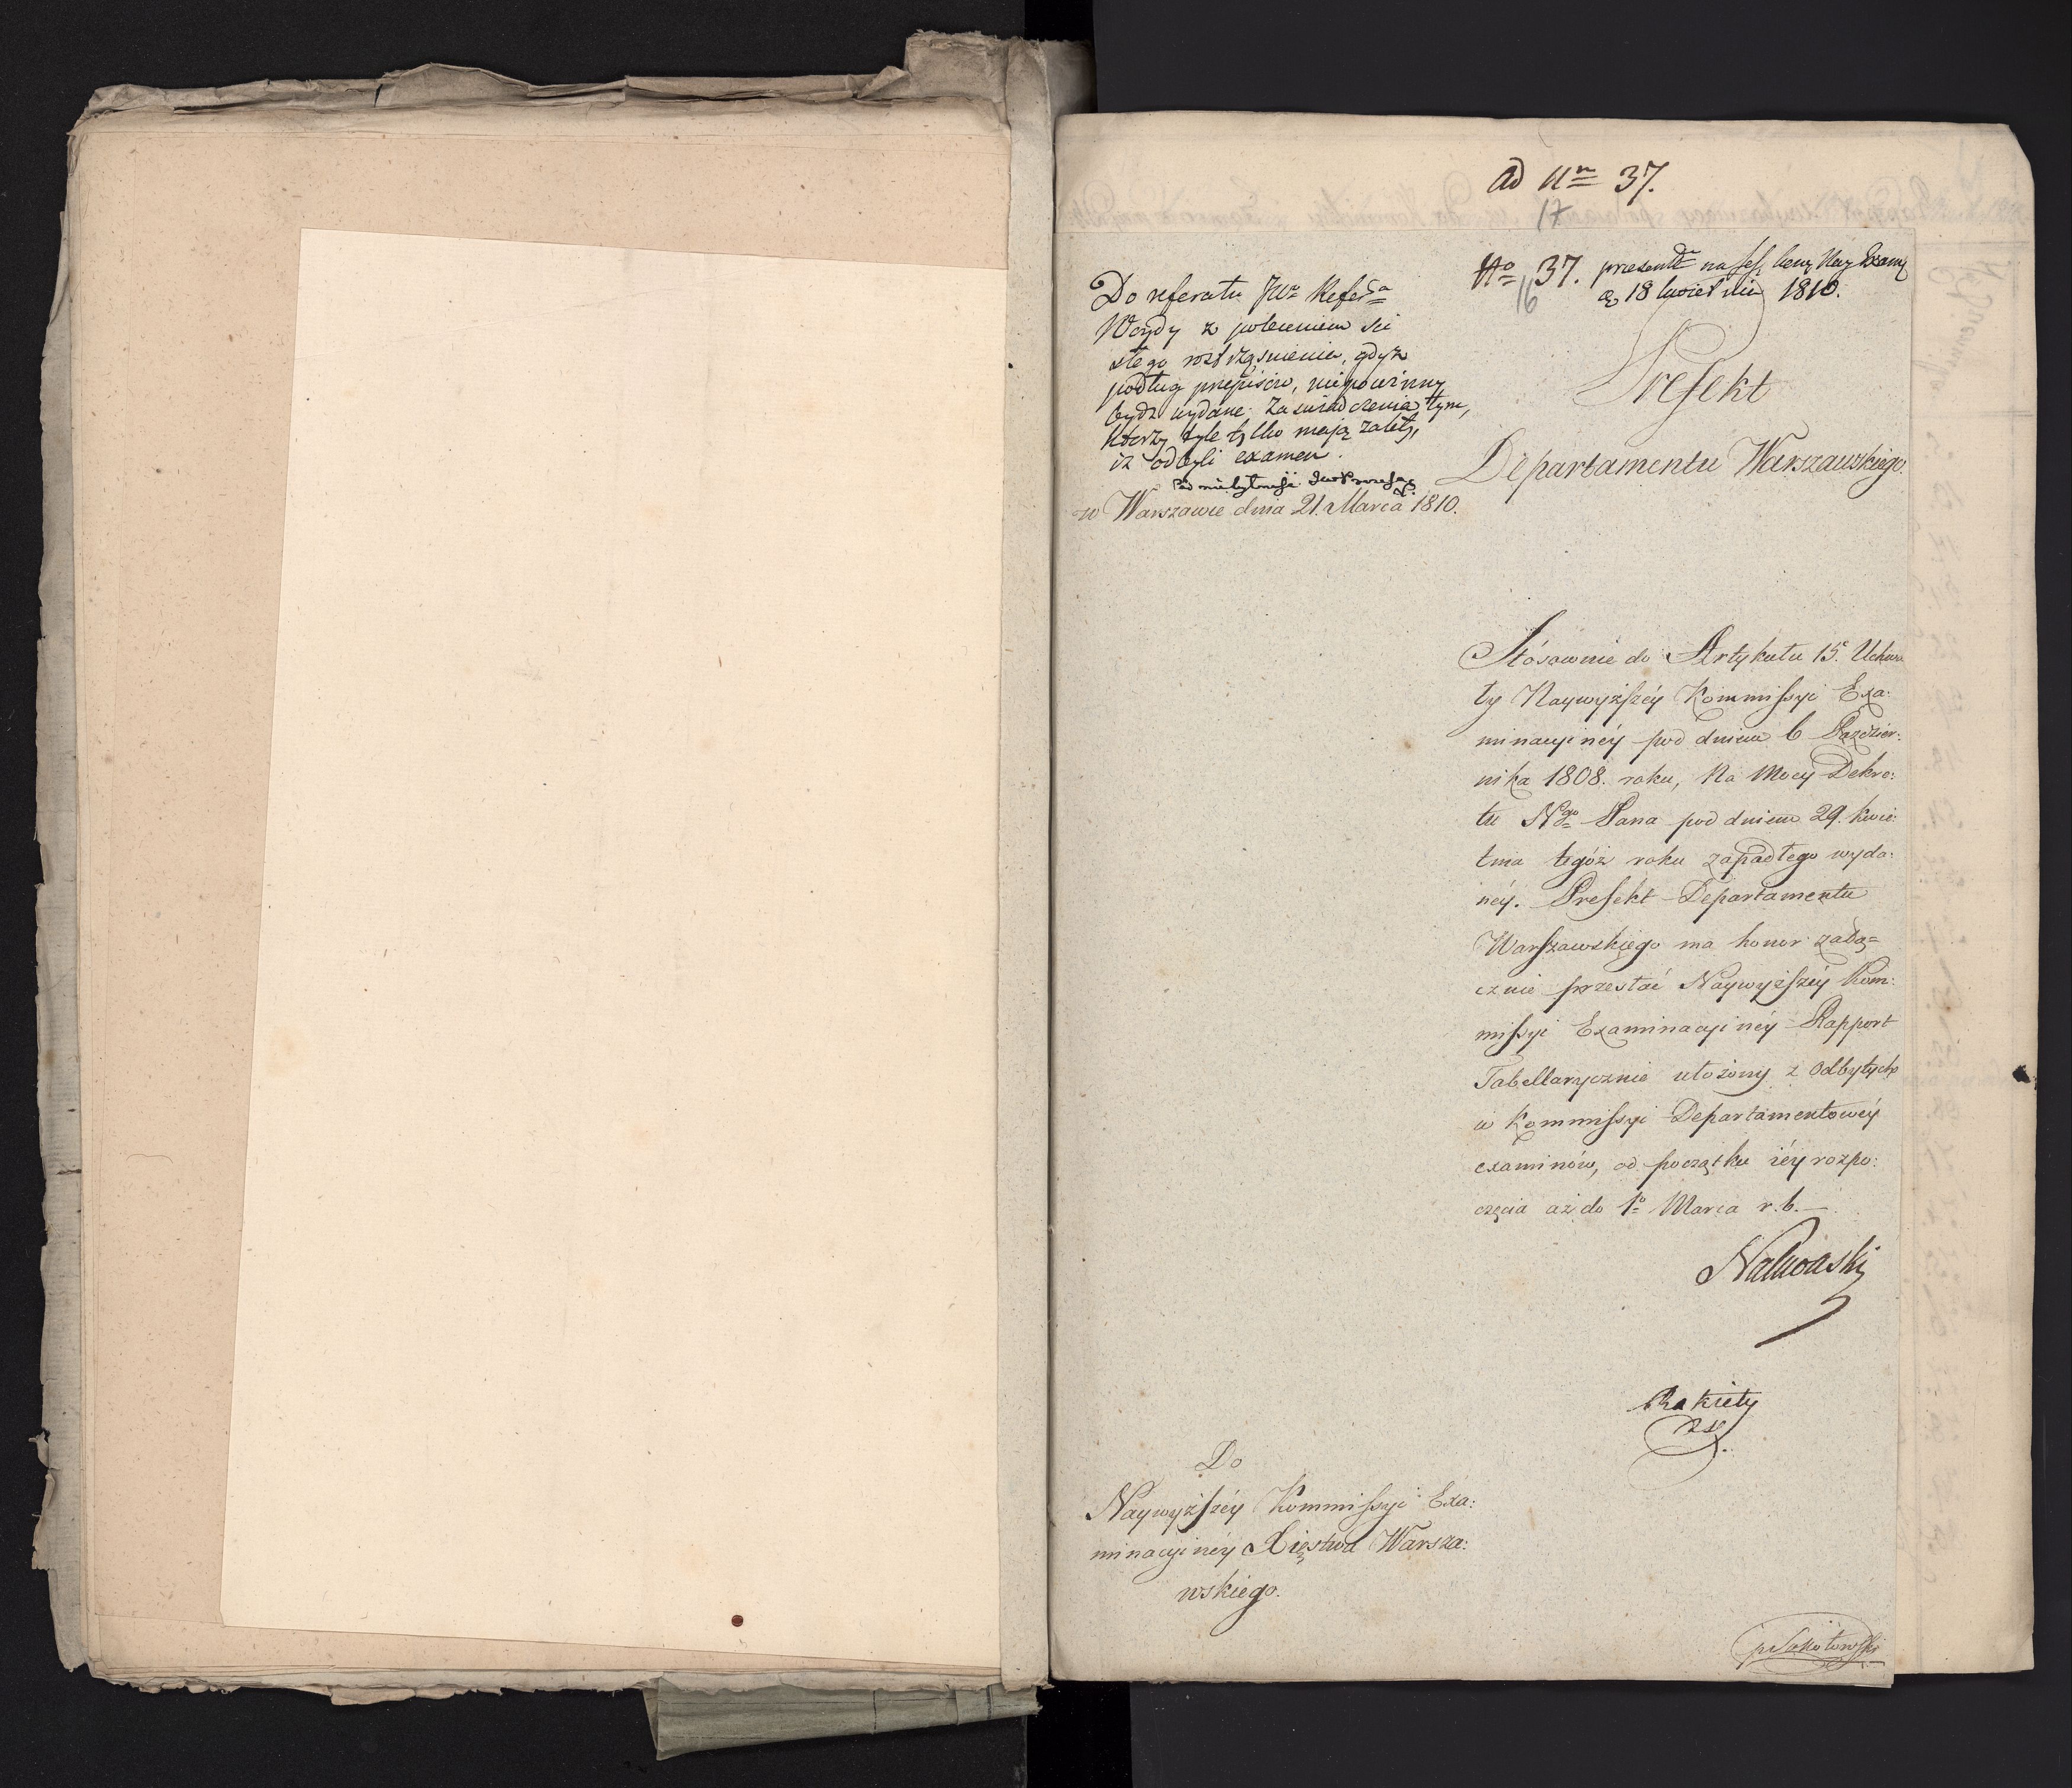 ad Nrm 37.
17
No 37. praesentm na Sess. Cenz. Nay. Exam.
16
d. 18 Kwietnia 1810.
Do referatu JWo Refer
Woydy z poleceniem ści
słego roztrząśnienia, gdyż
podług przepisów, niepowinny
bydź wydane zaświadczenia tym,
którzy tyle tylko mają zalety,
iż odbyli examen.
w niebytności
w Warszawie dnia 21. Marca 1810.
Prefekt
Departamentu Warszawskiego.
Stósownie do Artykułu 15. Uchwa
ły Naywyższéy Kommissyi Exa:
minacyinéy pod dniem 6 Paździer:
nika 1808. roku, Na Mocy Dekre:
tu Ngo Pana pod dniem 29. Kwie:
tnia tegóż roku zapadłego wyda:
néy. Prefekt Departamentu
Warszawskiego ma honor załą=
cznie przesłać Naywyższéy Kom:
missyi Examinacyinéy Rapport
Tabellarycznie ułożony z odbytych
w Kommissyi Departamentowéy
examinów, od początku iéy rozpo:
częcia aż do 1o Marca r. b. —
Nakwaski
Rakiety
ZS.
Do
Naywyższéy Kommissyi Exa:
minacyinéy Xięstwa Warsza:
wskiego.